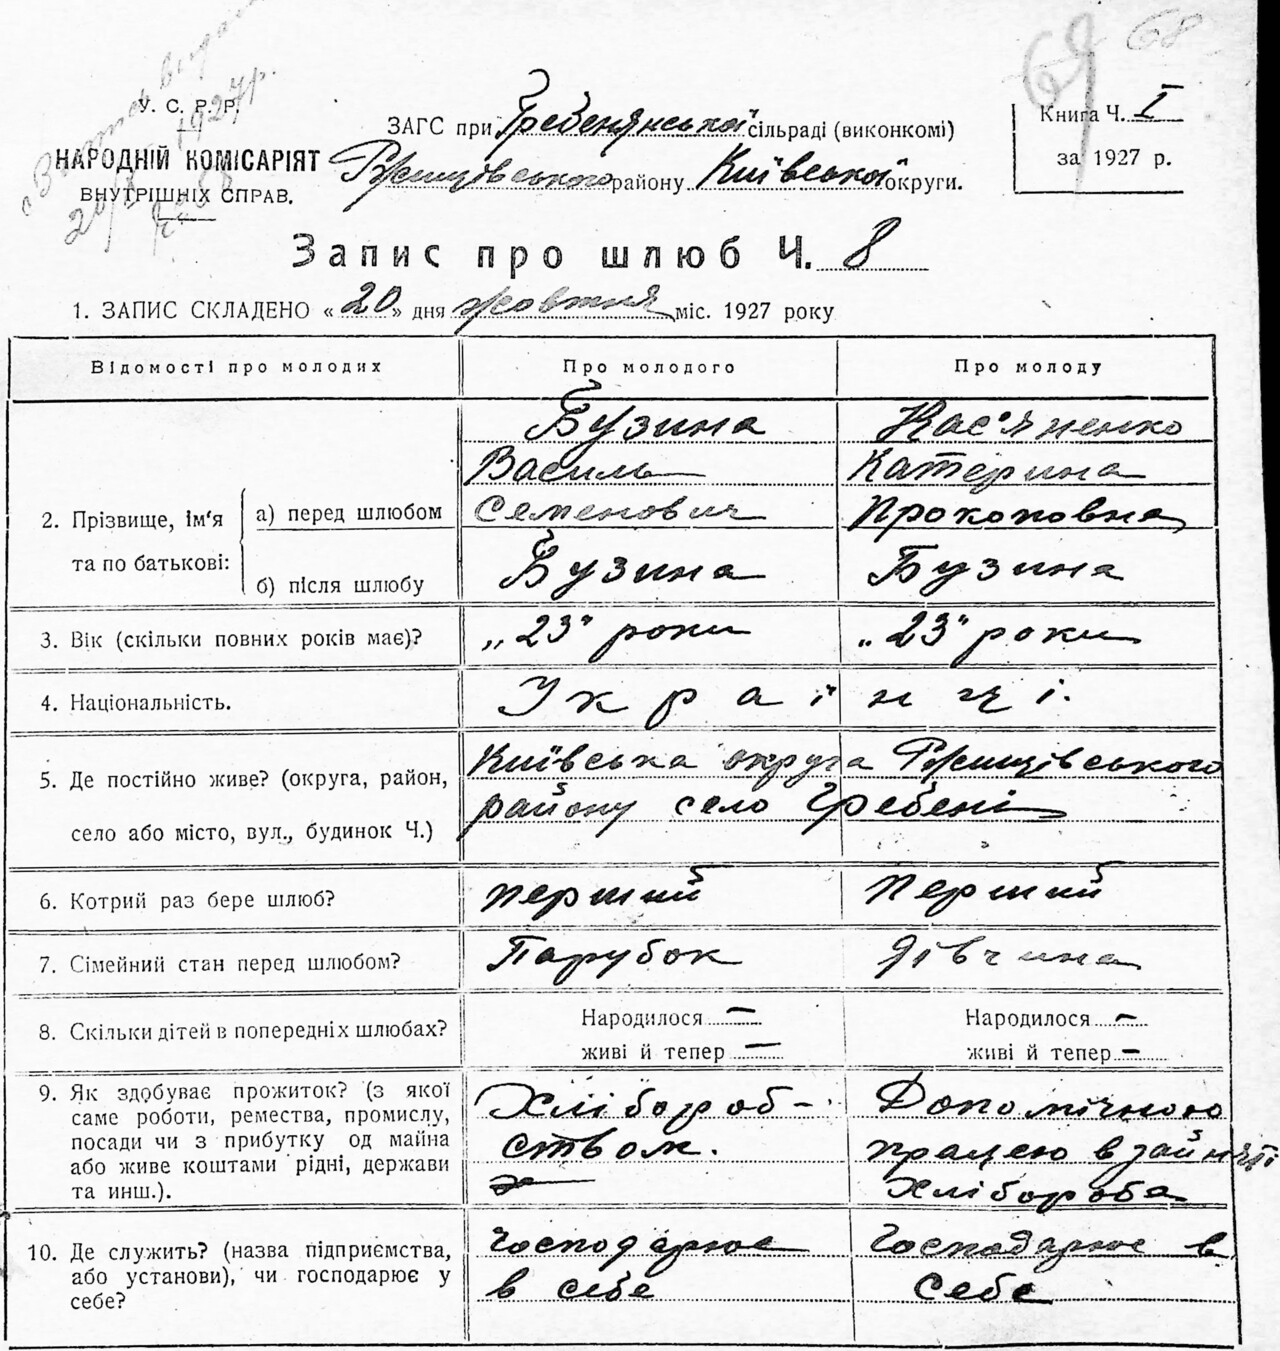 69 68
У. С. Р. Р.
НАРОДНІЙ КОМІСАРІЯТ
ВНУТРІШНІХ СПРАВ.
1927 р.
ЗАГС при Гребенянської сільраді (виконкомі)
Ржищівського району Київської округи.
Книга Ч. I
за 1927 р.
Запис про шлюб Ч. 8
1. ЗАПИС СКЛАДЕНО «20» дня жовтня міс. 1927 року
Відомості про молодих
Про молодого
Про молоду
2. Прізвище, ім'я
та по батькові:
а) перед шлюбом
Бузина
Василь
Семенович
Кас'яненко
Катерина
Прокоповна
б) після шлюбу
Бузина
Бузина
3. Вік (скільки повних років має)?
„23" роки
„23" роки
4. Національність.
Українці.
5. Де постійно живе? (округа, район,
село або місто, вул., будинок Ч.)
Київська округа Ржищівського
району село Гребені
6. Котрий раз бере шлюб?
перший
перший
7. Сімейний стан перед шлюбом?
Парубок
дівчина
8. Скільки дітей в попередніх шлюбах?
Народилося —
живі й тепер —
Народилося —
живі й тепер —
9. Як здобуває прожиток? (з якої
саме роботи, ремества, промислу,
посади чи з прибутку од майна
або живе коштами рідні, держави
та инш.).
Хлібороб-
ством.
Допомічною
працею в зайнятті
хлібороба
10. Де служить? (назва підприємства,
або установи), чи господарює у
себе?
Господарює
в себе
Господарює в
себе